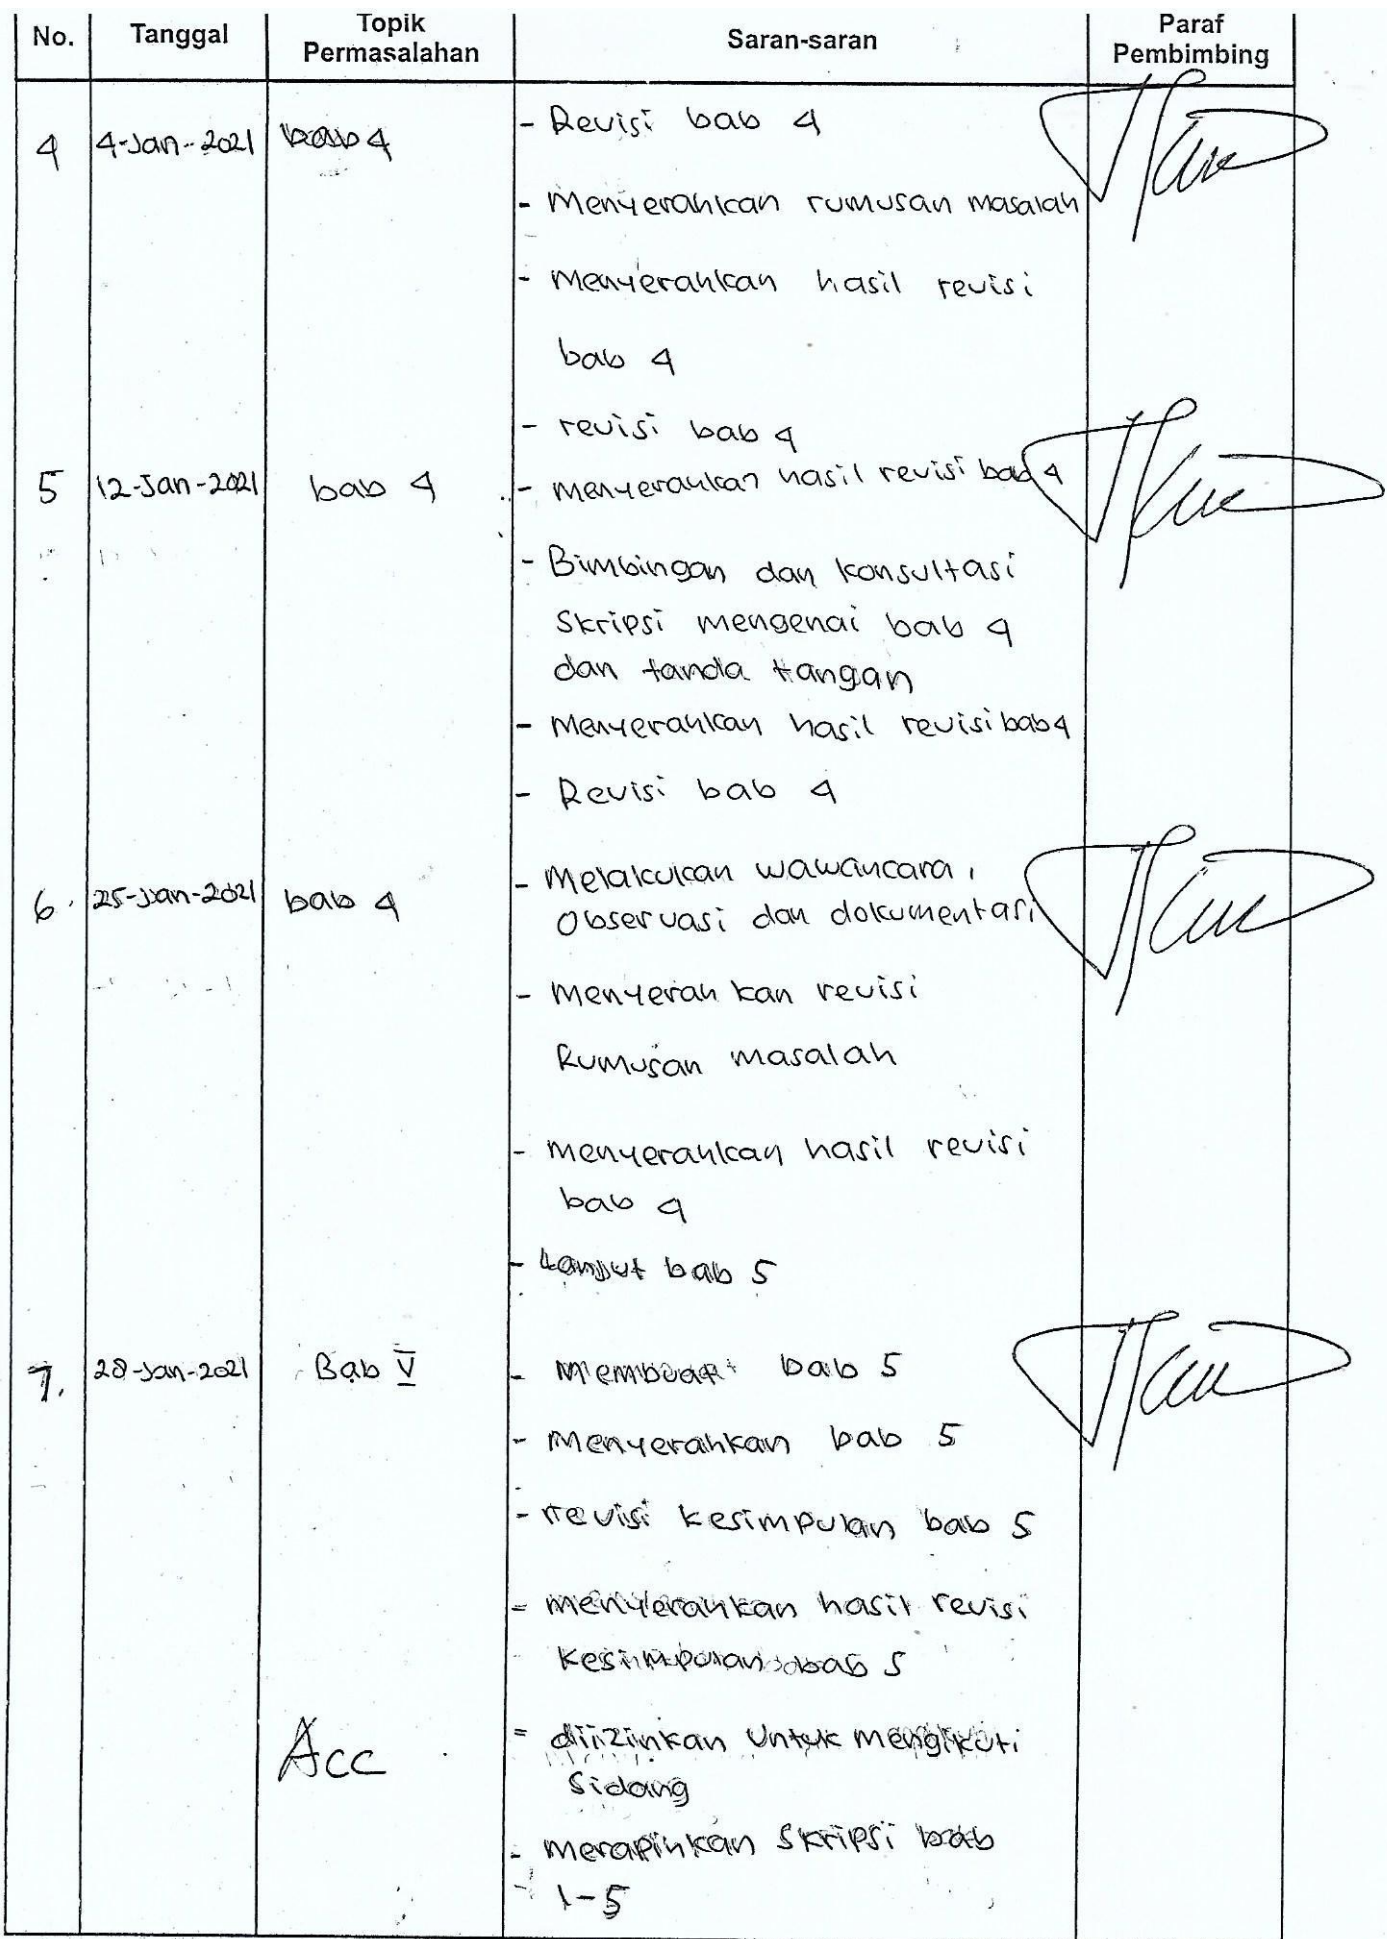 No. Tanggal Topik Permasalahan Saran-saran Paraf Pembimbing
4 4-Jan-2021 bab 4 - Revisi bab 4
- Menyerahkan rumusan masalah
- Menyerahkan hasil revisi
bab 4
- revisi bab 4
5 12-Jan-2021 bab 4 - menyerahkan hasil revisi bab 4
- Bimbingan dan konsultasi
Skripsi mengenai bab 4
dan tanda tangan
- Menyerahkan hasil revisi bab 4
- Revisi bab 4
6. 25-Jan-2021 bab 4 - Melakukan wawancara,
Observasi dan dokumentasi
- Menyerahkan revisi
Rumusan masalah
- menyerahkan hasil revisi
bab 4
- Lanjut bab 5
7. 28-Jan-2021 Bab V - Membuat bab 5
- Menyerahkan bab 5
- revisi kesimpulan bab 5
- menyerahkan hasil revisi
kesimpulan bab 5
Acc - diizinkan untuk mengikuti
Sidang
- merapihkan skripsi bab
1-5